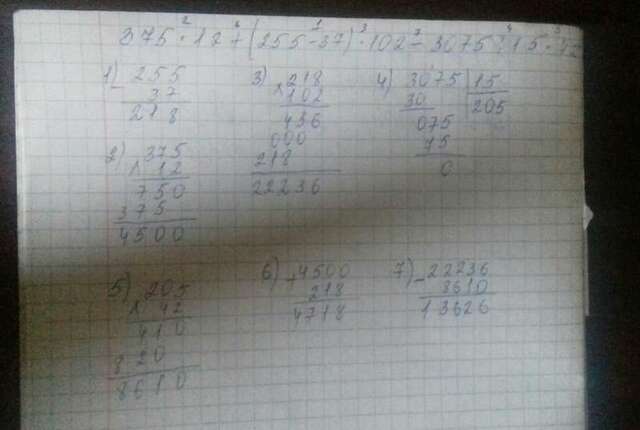 2 6 1 3 7 4 5
375·12+(255-37)·102-3075:15·42
1) 255
- 37
218
2) 375
× 12
750
375
4500
3) 218
×102
436
000
218
22236
4) 3075 15
30 205
075
75
0
5) 205
× 42
410
820
8610
6) +4500
218
4718
7) -22236
8610
13626